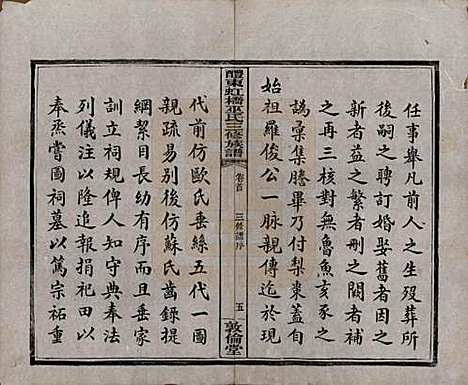 任事舉凡前人之生歿葬所
後嗣之聘訂婚娶舊者因之
新者益之繁者刪之闕者補
之再三核對無魯魚亥豕之
譌稾集謄畢乃付梨棗蓋自
始祖羅俊公一脉親傳迄於現
醴東虹橋巫氏三修族譜
卷首
三修譜序
五
敦倫堂
代前仿歐氏垂絲五代一圖
親疏易別後仿蘇氏齒錄提
綱絜目有序而且垂家
訓立祠規俾人知守典奉法
列儀注以隆追報捐祀田以
奉烝嘗圖祠墓以篤宗祏重